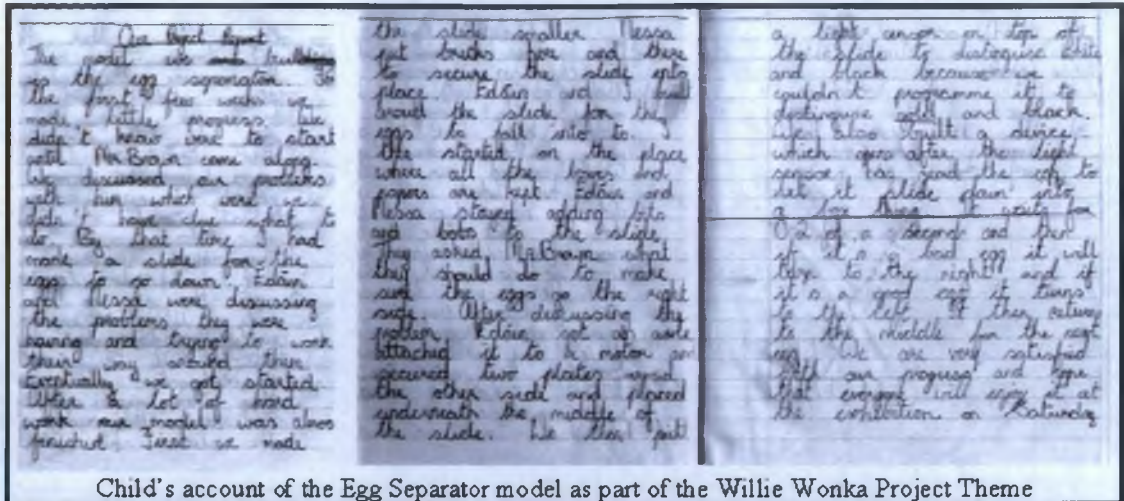 Our Project Report
The model we building
is the egg separator. For
the first few weeks we
made little progress. We
didn't know were to start
until Mr Brown came along.
We discussed our problems
with him which were we
didn't have clue what to
do. By that time I had
made a slide for the
eggs to go down. Edáin
and Nessa were discussing
the problems they were
having and trying to work
their way around them
Eventually we got started
After a lot of hard
work our model was almos
finished. First we made
the slide smaller Nessa
put bricks here and there
to secure the slide into
place. Edáin and I built
the slide for the
eggs to fall into to. I
the started on the place
where all the and
papers are kept Edáin and
Nessa stayed adding bits
and bobs to the slide.
They asked Mr Brown what
they should do to make
sure the eggs go the right
side. After discussing the
problem Edáin got an axle
attached it to a motor an
secured two plates
the other side and placed
underneath the middle of
the slide. We then put
a light censor on top of
the slide to distinguise white
and black because we
couldn't programme it to
distinguise gold and black.
We also built a device
which after the light
sensor has read the egg to
let it slide down into
a box it waits for
1/2 of a second and then
if it's a bad egg it will
turn to the right and if
it's a good egg it turns
to the left. It then returns
to the middle for the next
egg. We are very satisfied
with our progress and hope
that everyone will enjoy it at
the exhibition on Saturday
Child's account of the Egg Separator model as part of the Willie Wonka Project Theme